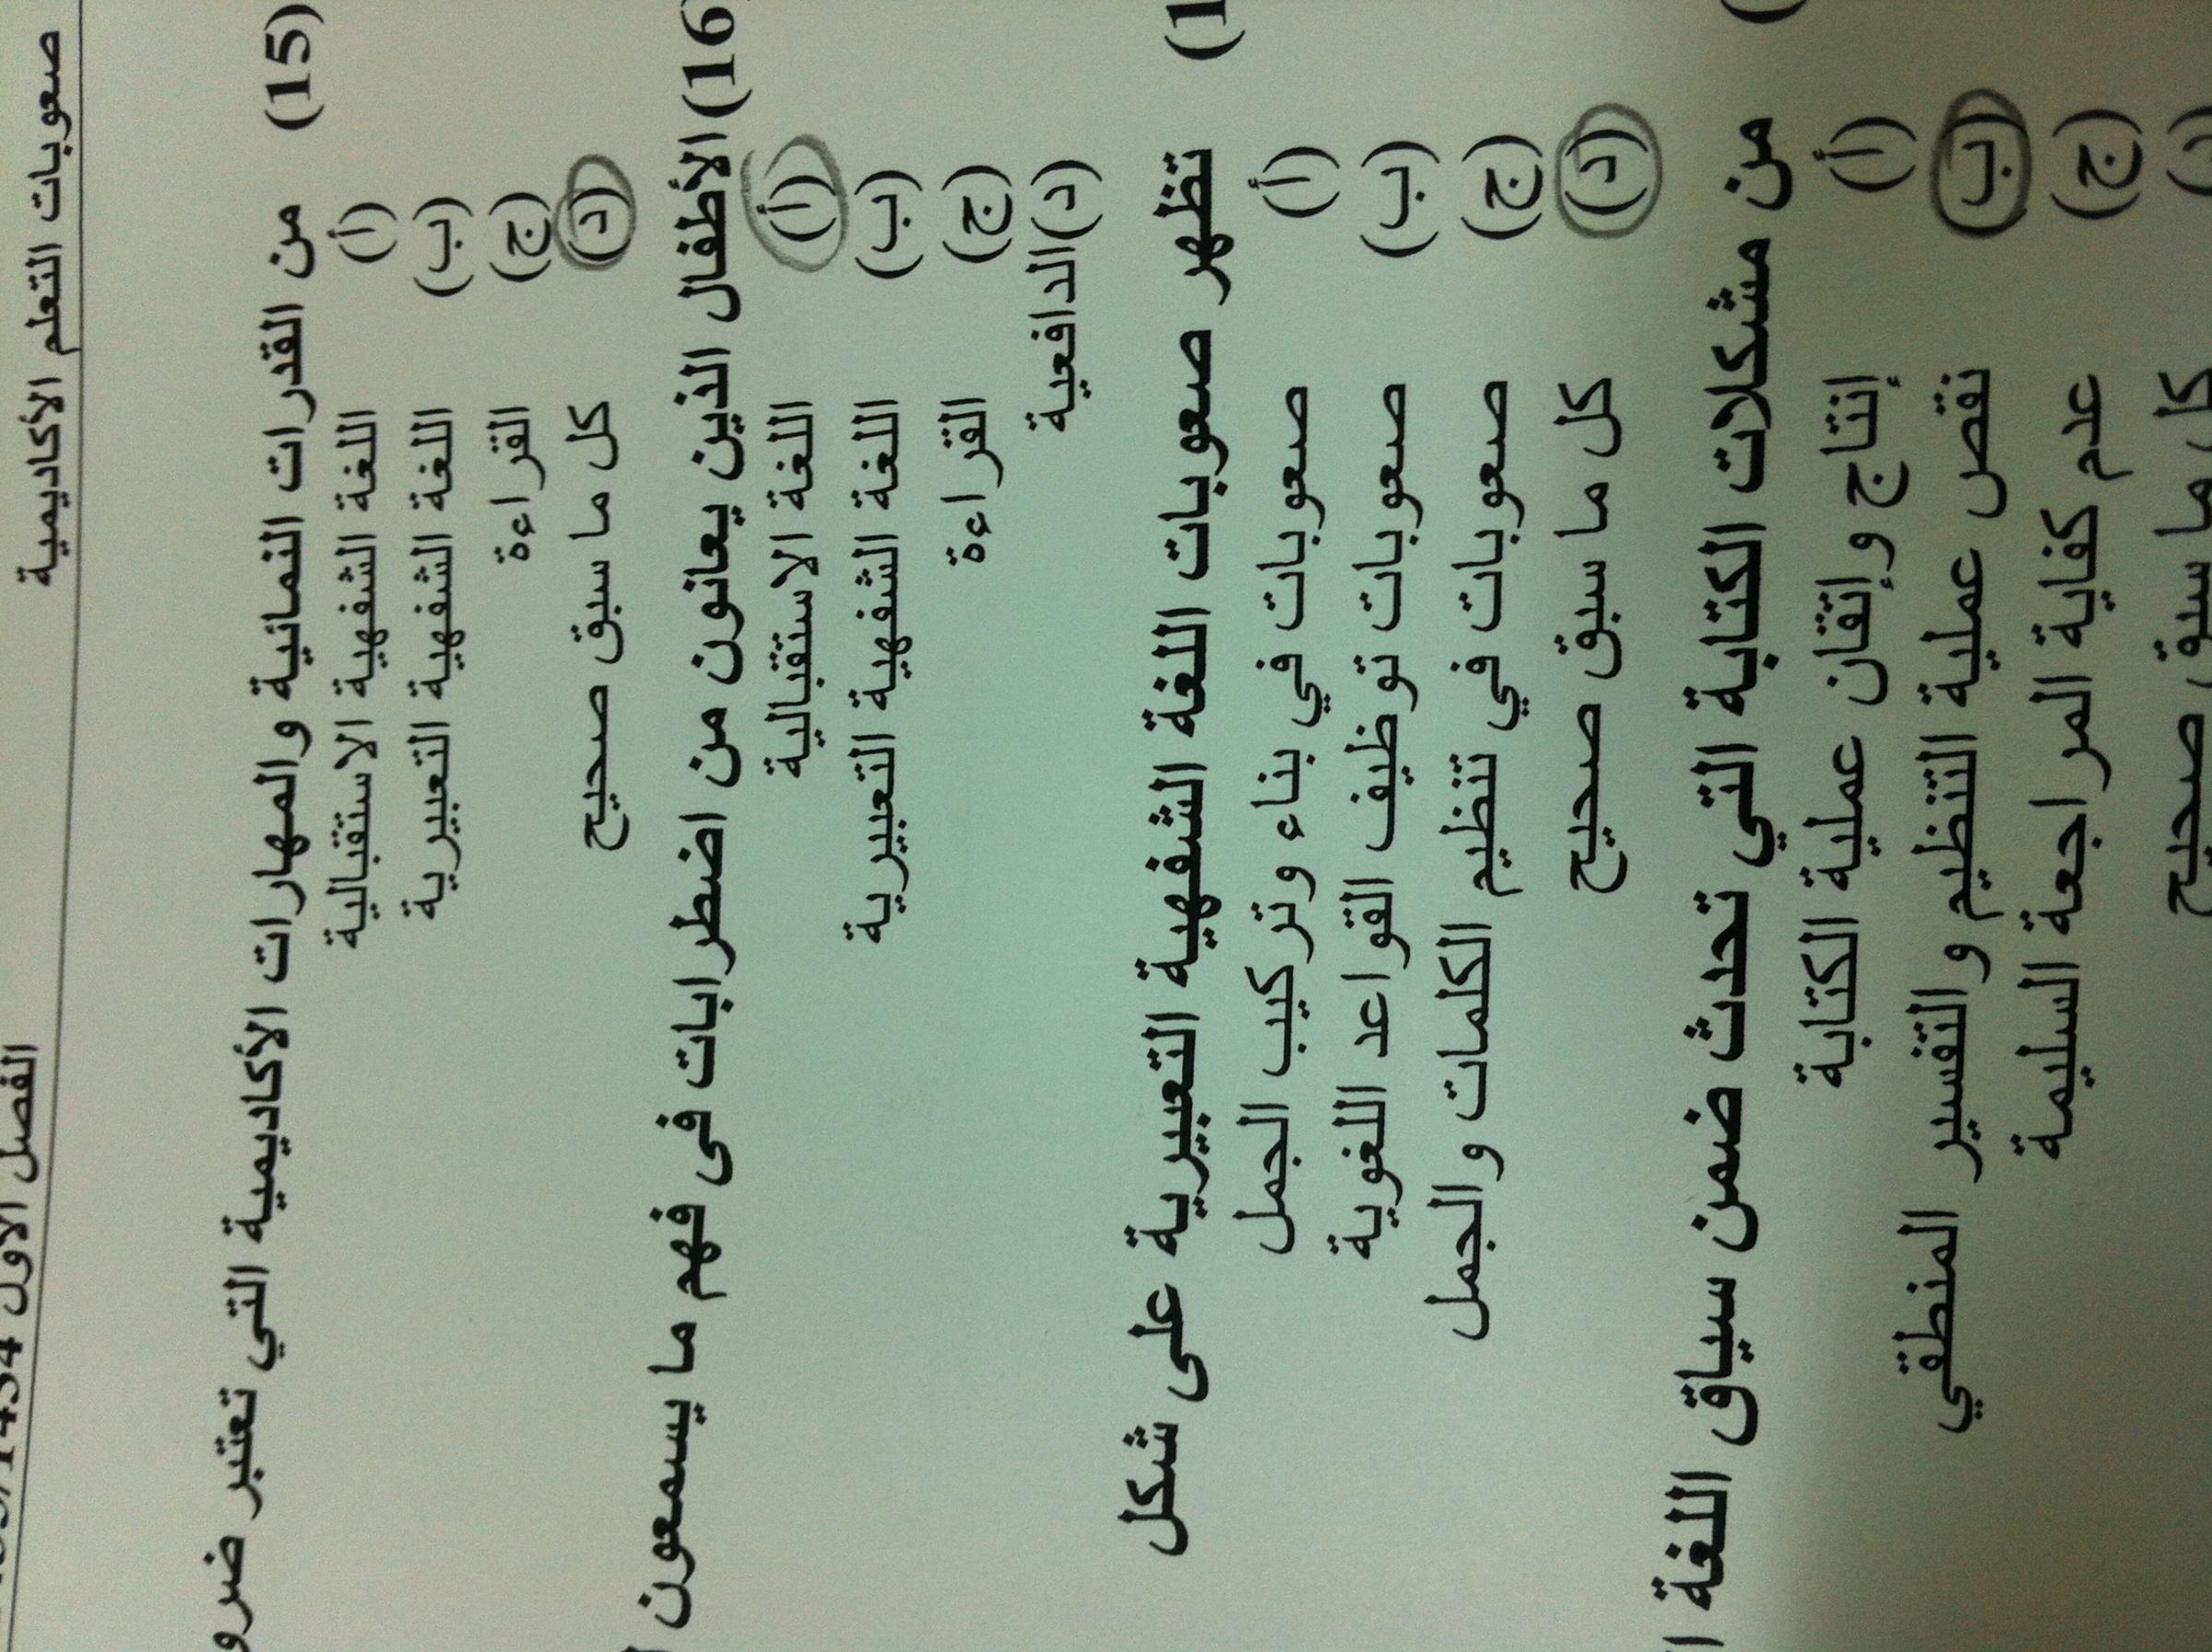 صعوبات التعلم الأكاديمية
الفصل الأول
(15) من القدرات النمائية والمهارات الأكاديمية التي تعتبر
(أ) اللغة الشفهية الاستقبالية
(ب) اللغة الشفهية التعبيرية
(ج) القراءة
(د) كل ما سبق صحيح
(16) الأطفال الذين يعانون من اضطرابات فى فهم ما يسمعون
(أ) اللغة الاستقبالية
(ب) اللغة الشفهية التعبيرية
(ج) القراءة
(د) الدافعية
تظهر صعوبات اللغة الشفهية التعبيرية على شكل
(أ) صعوبات في بناء وتركيب الجمل
(ب) صعوبات توظيف القواعد اللغوية
(ج) صعوبات في تنظيم الكلمات والجمل
(د) كل ما سبق صحيح
من مشكلات الكتابة التي تحدث ضمن سياق اللغة
(أ) إنتاج وإتقان عملية الكتابة
(ب) نقص عملية التنظيم والتفسير المنطقي
(ج) عدم كفاية المراجعة السليمة
(د) كل ما سبق صحيح